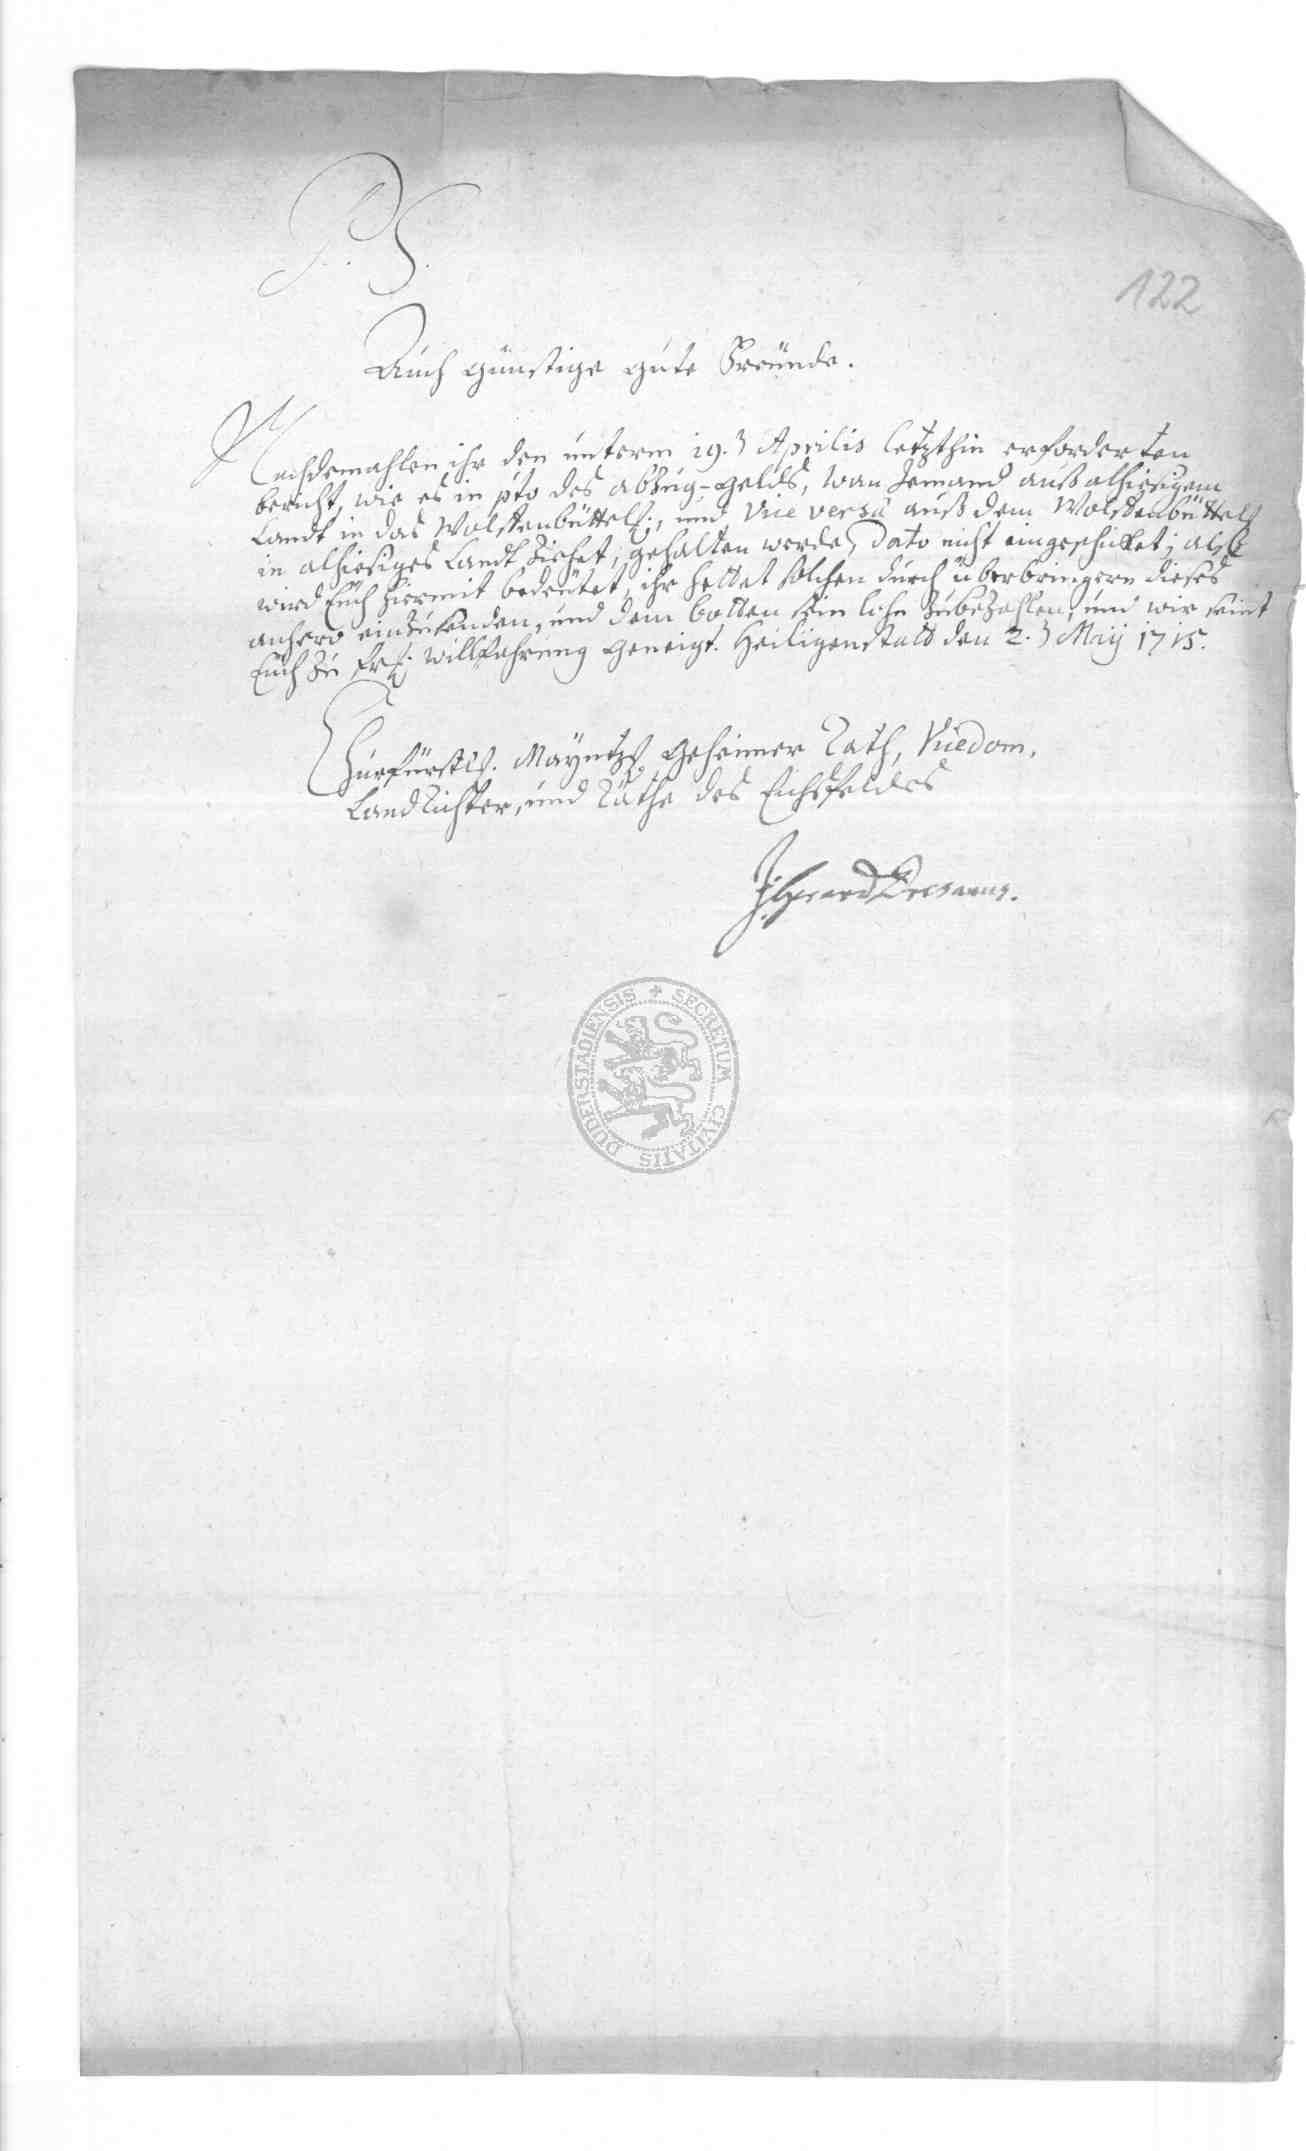 P. S.
122
Auch günstige gute Freünde.
Nachdemahlen ihr den unterm 19.ʒ Aprilis letzthin erforderten
bericht, wie es in pto des abzug-gelds, wan Jemand auß alhiesigem
Landt in das Wolffenbüttels:, und vice versâ auß dem Wolffenbüttels
in alhiesiges Landt ziehet, gehalten werde, dato nicht eingeschicket; alß
wird Euch hiermit bedeutet, ihr hettet solchen durch überbringern dieses
anhero einzusenden, und dem botten sein lohn zubezahlen, und wir seint
Euch zu willfahrung geneigt. Heiligenstadt den 2.ʒ Maij 1715.
Churfürstl. Mayntzs. Geheimer Rath, Vicedom,
Landrichter, und Räthe des Eichsfeldes
SECRETUM CIVITATIS DUDERSTADIENSIS